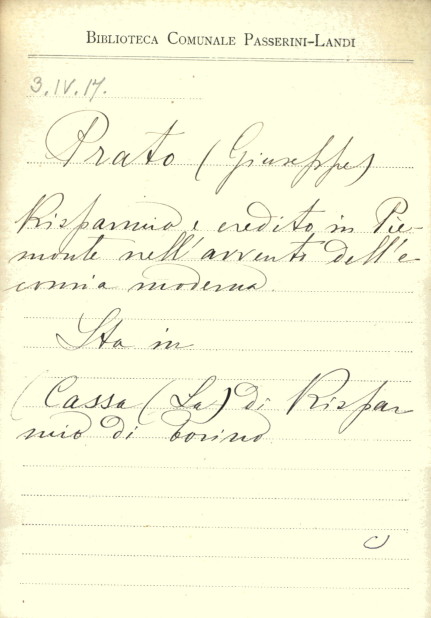 BIBLIOTECA COMUNALE PASSERINI-LANDI
3.IV.17.
Prato (Giuseppe)
Risparmio e credito in Pie-
monte nell'avvento dell'e-
conomia moderna.
Sta in
(Cassa (La) di Rispar
mio di Torino